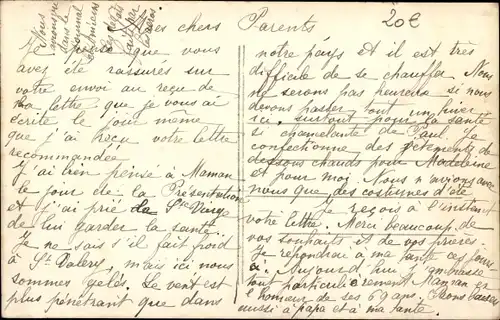 20E
Mes chers Parents
Je pense que vous
avez été rassurés sur
votre envoi au reçu de
ma lettre que je vous ai
écrite le jour même
que j'ai reçu votre lettre
recommandée
J'ai bien pensé à Maman
le jour de la Présentation
et j'ai prié la Ste Vierge
de lui garder la santé
Je ne sais s'il fait froid
à St Valery, mais ici nous
sommes gelés. Le vent est
plus pénétrant que dans
notre pays et il est très
difficile de se chauffer. Nous
ne serons pas heureux si nous
devons passer tout un hiver
ici, surtout pour la santé
si chancelante de Paul. Je
confectionne des vêtements de
dessous chauds pour Madeleine
et pour moi. Nous n'avions avec
nous que des costumes d'été
Je reçois à l'instant
votre lettre. Merci beaucoup de
vos souhaits et de vos prières
Je répondrai à ma tante ces jours
Aujourd'hui j'embrasse
tout particulièrement Maman en
l'honneur de ses 69 ans. Bons baisers
aussi à papa et à ma tante.
Vous
dans le
journal